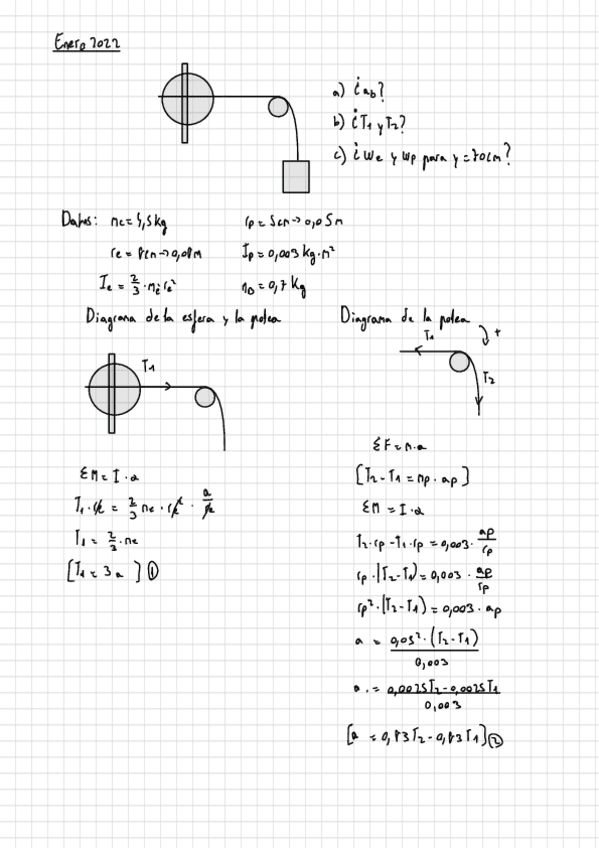 Enero 2022
a) ¿ab?
b) ¿T1 y T2?
c) ¿we y wp para y=70cm?
Datos: me=4,5kg rp=5cm→0,05m
re=8cm→0,08m Ip=0,003kg·m²
Ie=2/3·me·re² mb=0,7kg
Diagrama de la esfera y la polea
T1
ΣM=I·α
T1·re=2/3 me·re²·a/re
T1=2/3·me
[T1=3a] ①
Diagrama de la polea
T1
+
T2
ΣF=m·a
[T2-T1=mp·ap]
ΣM=I·α
T2·rp-T1·rp=0,003·ap/rp
rp·(T2-T1)=0,003·ap/rp
rp²·(T2-T1)=0,003·ap
a=0,05²·(T2-T1)/0,003
a=0,0025T2-0,0025T1/0,003
[a=0,83T2-0,83T1] ②